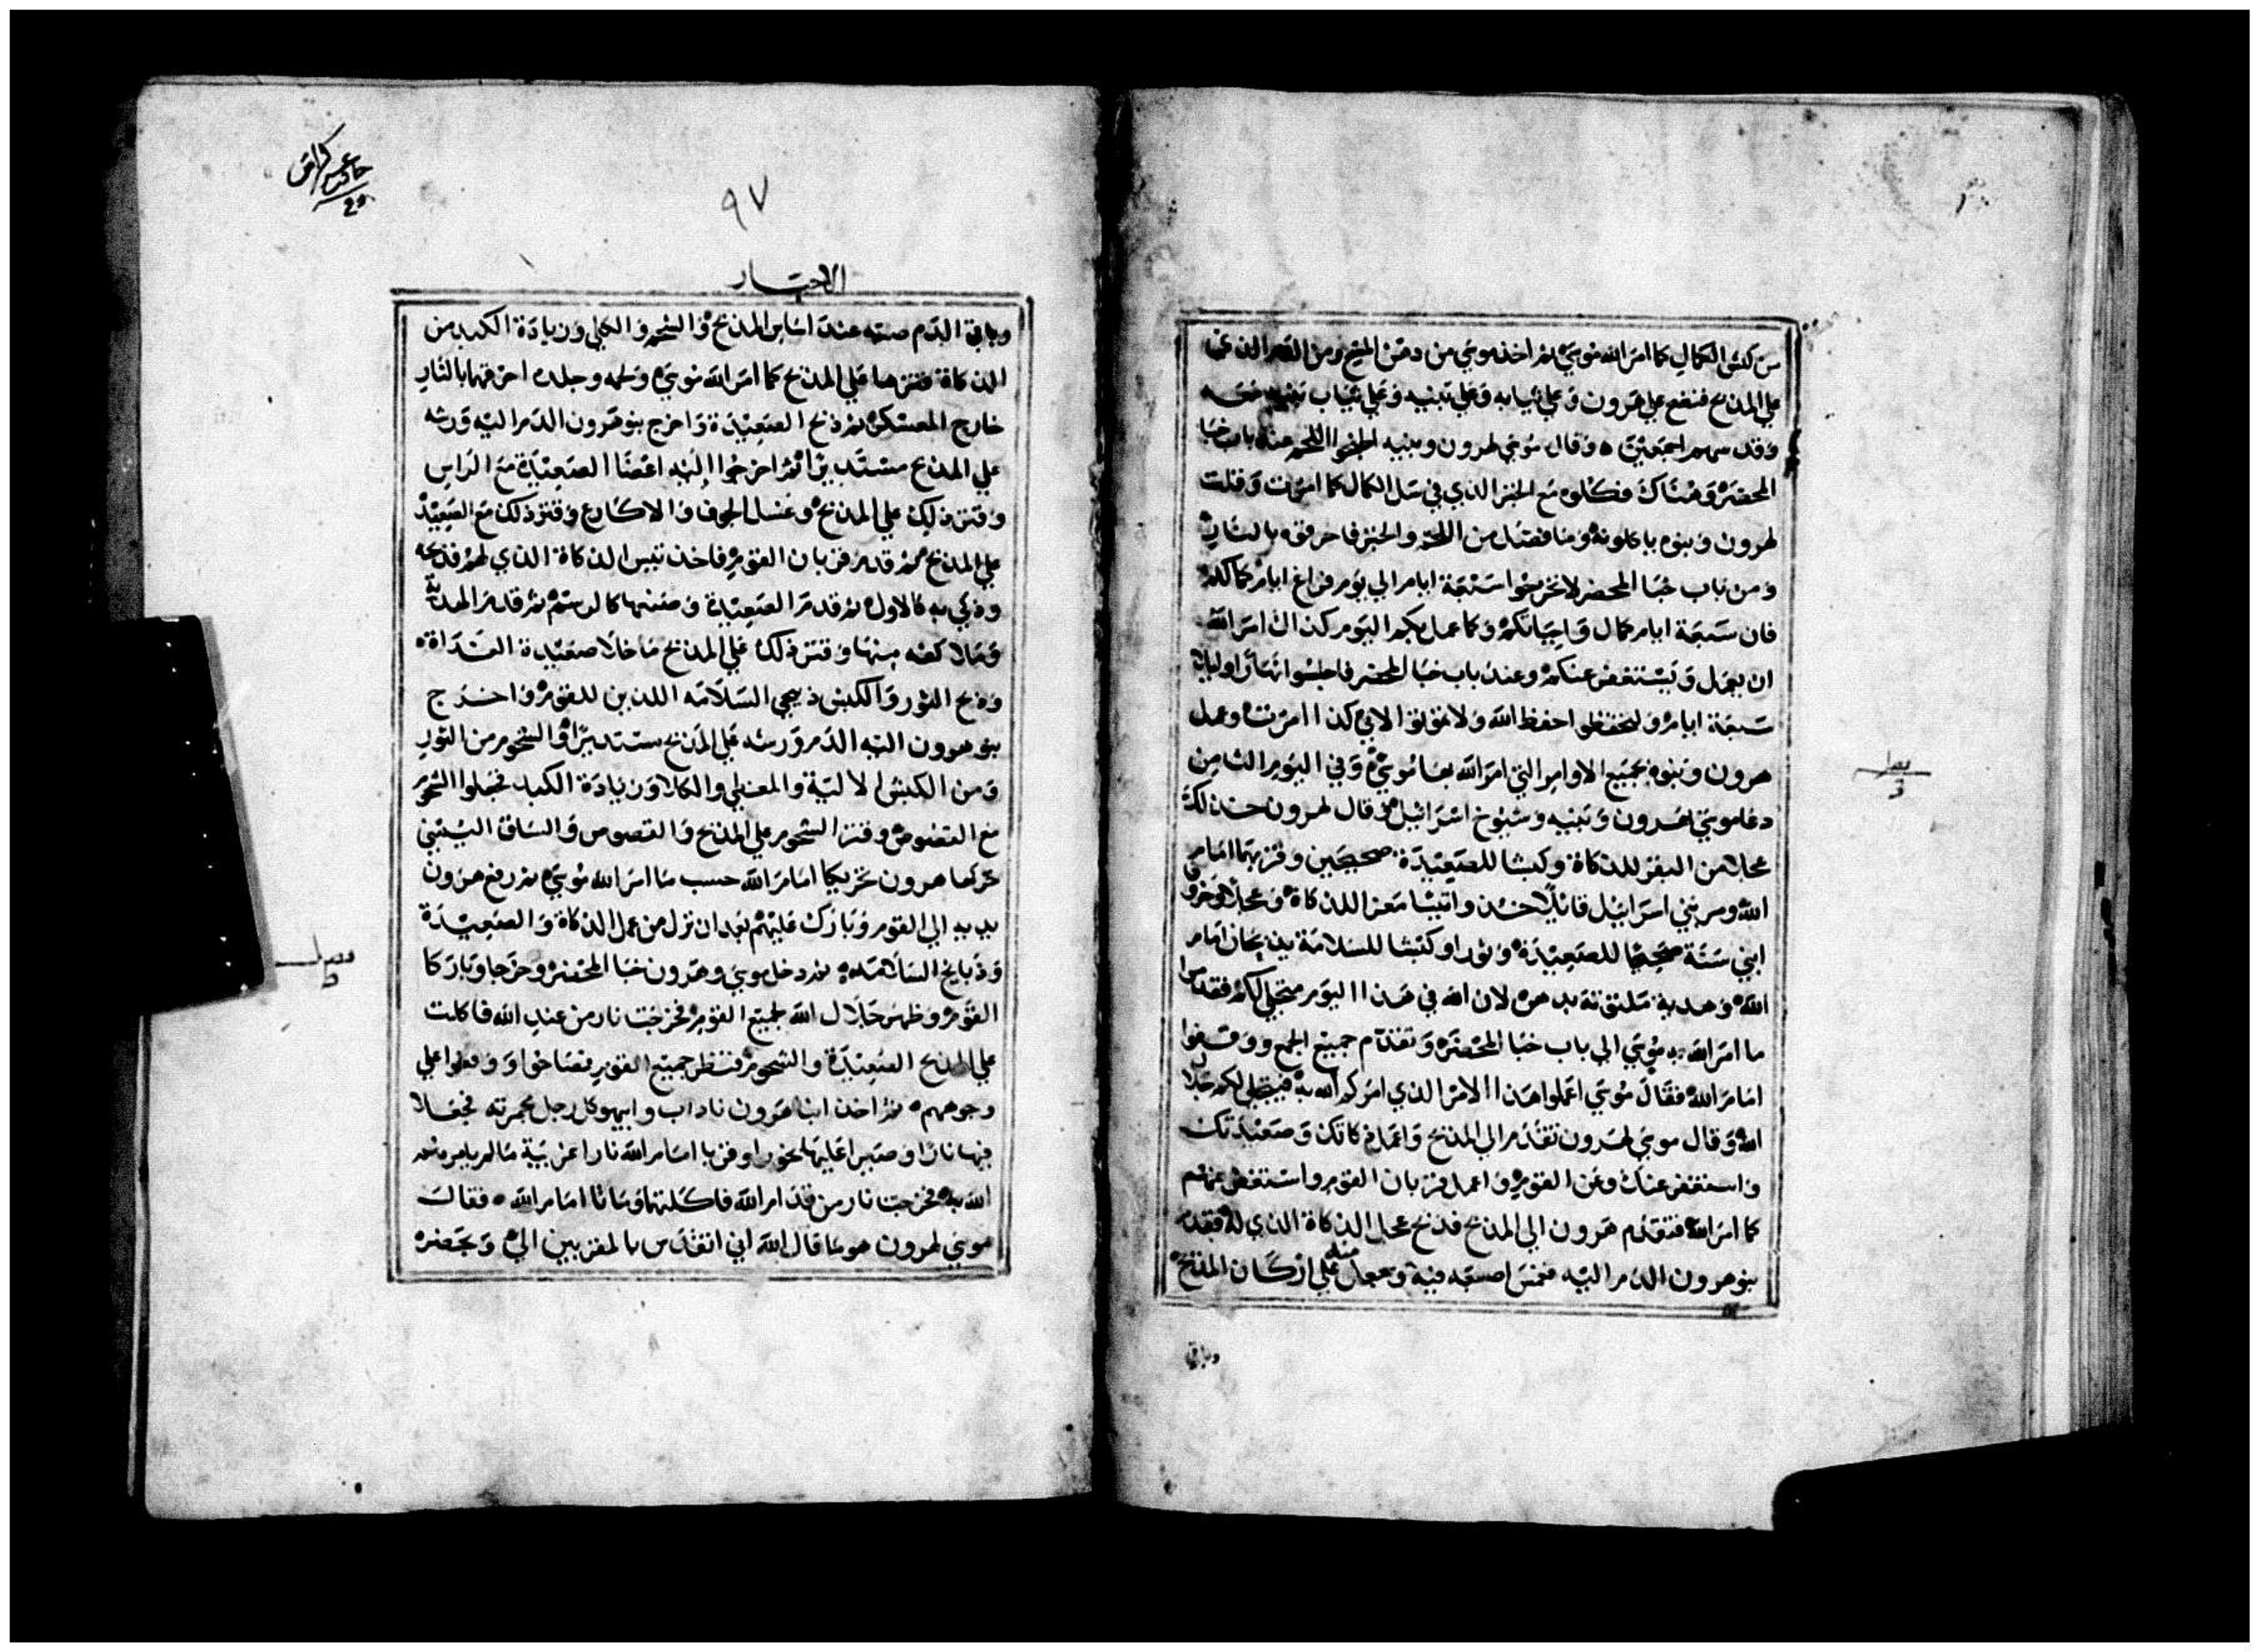 من كبش الكمال كما امر الله موسي ثم اخذ موسي من دهن المسح ومن الدم الذي
علي المذبح فنضح علي هرون وعلي ثيابه وعلي بنيه وعلي ثياب بنيه معه
وقدسهم اجمعين وقال موسي لهرون وبنيه اطبخوا اللحم عند باب خبا
المحضر وهناك فكلوه مع الخبز الذي في سل الكمال كما امرت وقلت
لهرون وبنوه ياكلونه وما فضل من اللحم والخبز فاحرقوه بالنار
ومن باب خبا المحضر لا تخرجوا سبعة ايام الي يوم فراغ ايام كمالكم
فان سبعة ايام كمال واجباتكم وكما عمل بكم اليوم كذلك امر الله
ان يعمل ويستغفر عنكم وعند باب خبا المحضر فاجلسوا نهارا وليلا
سبعة ايام ولتحفظوا احفظ الله ولا تموتوا لاني كذا امرت وعمل
هرون وبنوه بجميع الاوامر التي امر الله بها موسي وفي اليوم الثامن
دعا موسي لهرون وبنيه وشيوخ اسرائيل وقال لهرون خذ لك
عجلا من البقر للذكاة وكبشا للصعيدة صحيحين وقربهما امام
الله ومر بني اسرائيل قائلا خذوا تيسا معز اللذكاة وعجلا وخروفا
ابني سنة صحيحا للصعيدة وثورا وكبشا للسلامة يذبحان امام
الله وهدية ملتوتة بدهن لان الله في هذا اليوم متجلي لكم فقدموا
ما امر الله به موسي الي باب خبا المحضر وتقدم جميع الجمع ووقفوا
امام الله فقال موسي اعملوا هذا الامر الذي امركم الله به فيتجلي لكم جلال
الله وقال موسي لهرون تقدم الي المذبح واعمل ذكاتك وصعيدتك
واستغفر عنك وعن القوم واعمل قربان القوم واستغفر عنهم
كما امر الله فتقدم هرون الي المذبح فذبح عجل الذكاة الذي له فقدم
بنو هرون الدم اليه فغمس اصبعه فيه وجعل منه علي اركان المذبح
وباقي
٩٧
الاحبار
وباقي الدم صبه عند اساس المذبح والشحم والكلي وزيادة الكبد من
الذكاة فتزها علي المذبح كما امر الله موسي ولحمه وجلده احرقها بالنار
خارج المعسكر ثم ذبح الصعيدة واخرج بنو هرون الدم اليه ورشه
علي المذبح مستديرا ثم اخرجوا اليه اعضا الصعيدة مع الراس
وقتر ذلك علي المذبح وغسل الجوف والاكارع وقتر ذلك مع الصعيدة
علي المذبح ثم قدم قربان القوم فاخذ تيس الذكاة الذي لهم فذبحه
وذكي به كالاول ثم قدم الصعيدة وصنعها كالرسم ثم قدم الهدية
وملا كفه منها وقتر ذلك علي المذبح ما خلا صعيدة الغداة
وذبح الثور والكبش ذبيحي السلامة اللذين للقوم واخرج
بنو هرون اليه الدم ورشه علي المذبح مستديرا والشحوم من الثور
ومن الكبش الالية والمغطي والكلا وزيادة الكبد فجعلوا الشحوم
مع القصوص وقتر الشحوم علي المذبح والقصوص والساق اليمني
حركها هرون تحريكا امام الله حسب ما امر الله موسي ثم رفع هرون
يديه الي القوم وبارك عليهم بعد ان نزل من عمل الذكاة والصعيدة
وذبايح السلامة ثم دخل موسي وهرون خبا المحضر وخرجا وباركا
القوم وظهر جلال الله لجميع القوم فخرجت نار من عند الله فاكلت
علي المذبح الصعيدة والشحوم فنظر جميع القوم فصاحوا ووقعوا علي
وجوههم ثم اخذ ابنا هرون ناداب وابيهو كل رجل مجمرته فجعلا
فيها نارا وصيرا عليها بخورا وقربا امام الله نارا غريبة ما لم يامرهم
الله به فخرجت نار من قدام الله فاكلتهما وماتا امام الله فقال
موسي لهرون هو ما قال الله اني اتقدس بالمقربين الي وبحضرة